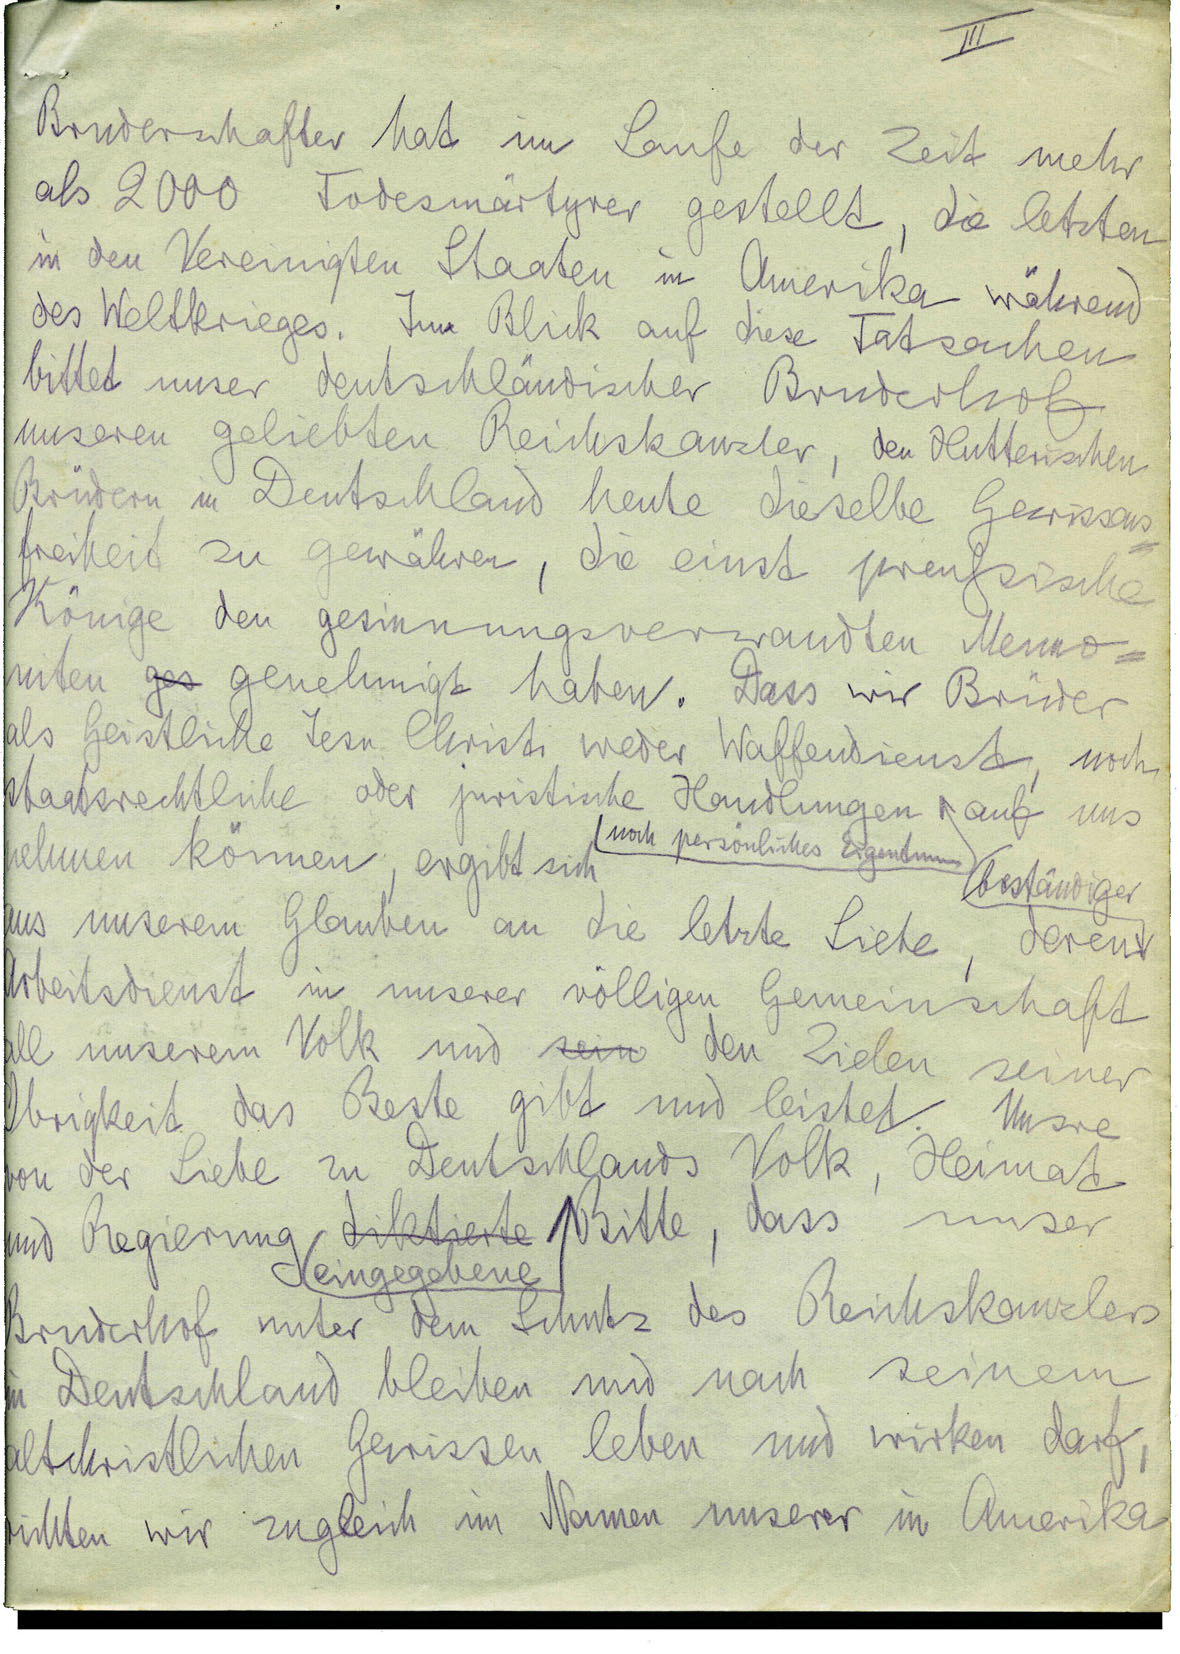 III
Bruderschafter hat im Laufe der Zeit mehr
als 2000 Todesmärtyrer gestellt, die letzten
in den Vereinigten Staaten in Amerika während
des Weltkrieges. Im Blick auf diese Tatsachen
bittet unser deutschländischer Bruderhof
unseren geliebten Reichskanzler, den Hutterischen
Brüdern in Deutschland heute dieselbe Gewissens=
freiheit zu gewähren, die einst preussische
Könige den gesinnungsverwandten Menno=
niten ges genehmigt haben. Dass wir Brüder
als Geistliche Jesu Christi weder Waffendienst, noch
staatsrechtliche oder juristische Handlungen auf uns
noch persönliches Eigentum
nehmen können, ergibt sich
beständiger
aus unserem Glauben an die letzte Liebe, deren
Arbeitsdienst in unserer völligen Gemeinschaft
all unserem Volk und sein den Zielen seiner
Obrigkeit das Beste gibt und leistet. Unsre
von der Liebe zu Deutschlands Volk, Heimat
und Regierung diktierte Bitte, dass unser
eingegebene
Bruderhof unter dem Schutz des Reichskanzlers
in Deutschland bleiben und nach seinem
altchristlichen Gewissen leben und wirken darf,
richten wir zugleich im Namen unserer in Amerika